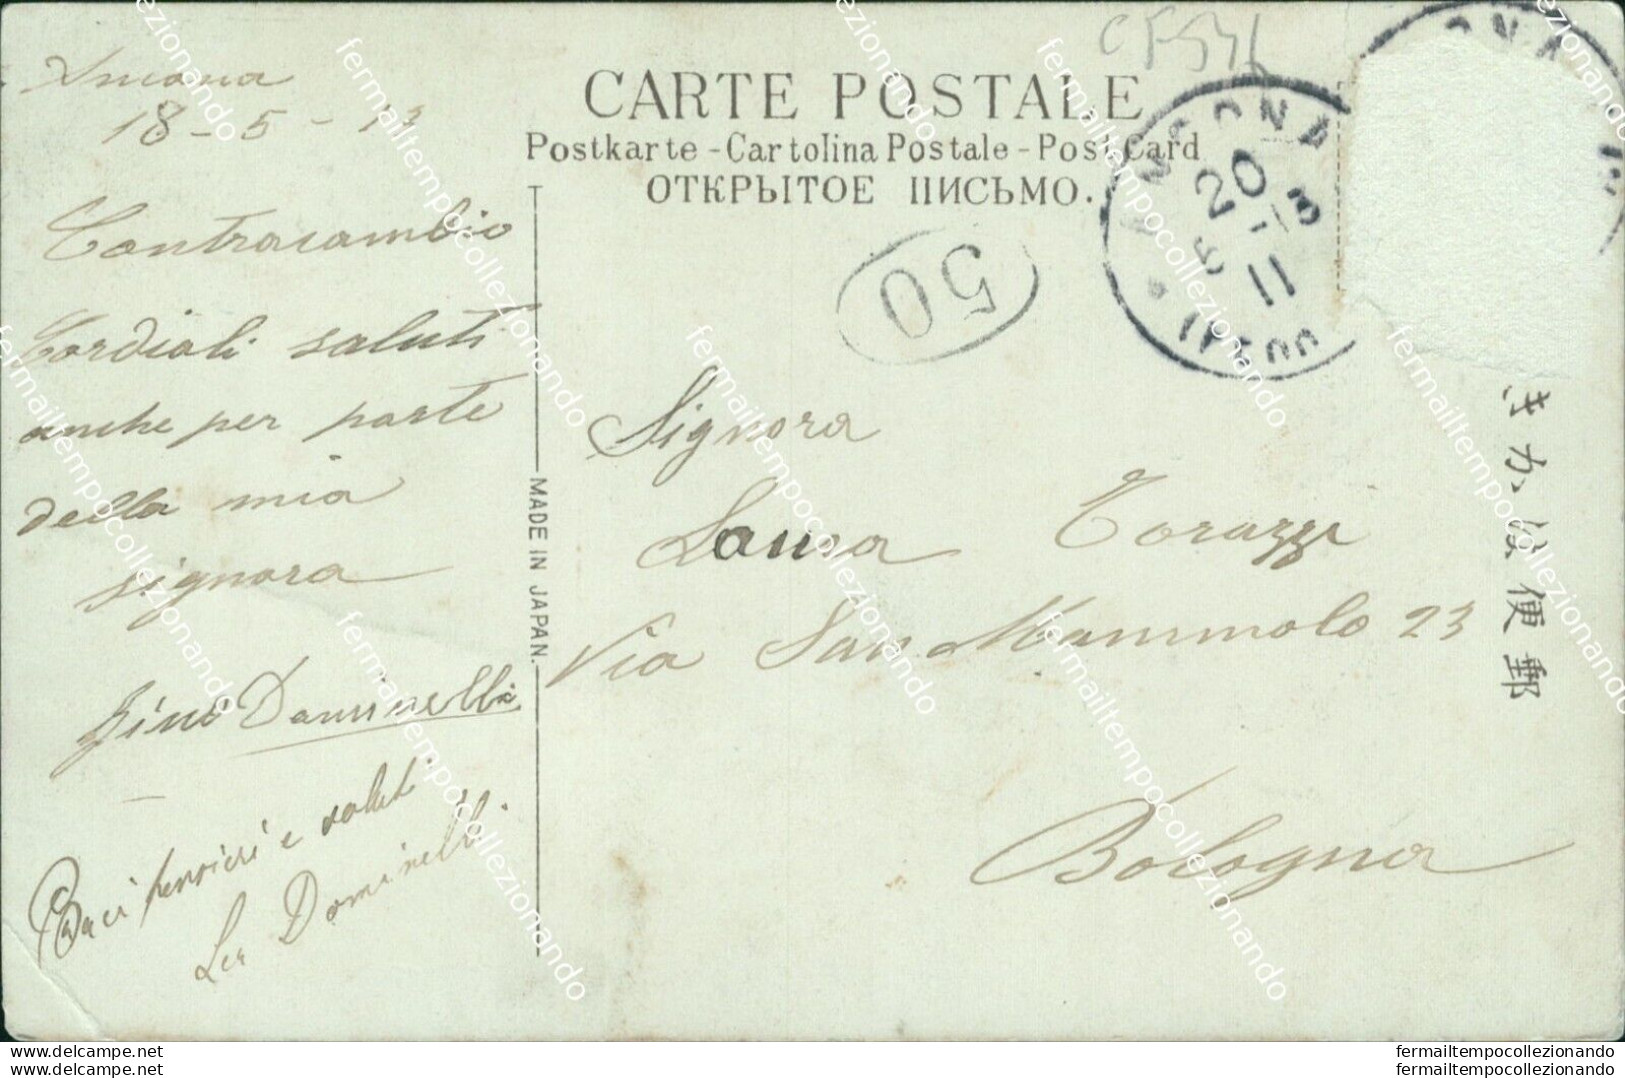 Ancona
18-5-13
Contracambio
Cordiali saluti
anche per parte
della mia
signora
Gino Dominelli
Baci pensieri e saluti
Dominelli
CARTE POSTALE
Postkarte-Cartolina Postale-Post Card
ОТКРЫТОЕ ПИСЬМО.
MADE IN JAPAN.
ANCONA
20
5-13
11
50
Signora
Laura Torazzi
Via San Mammolo 23
Bologna
郵便はかき
fermailtempocollezionando
www.delcampe.net
www.delcampe.net
fermailtempocollezionando
fermailtempocollezionando